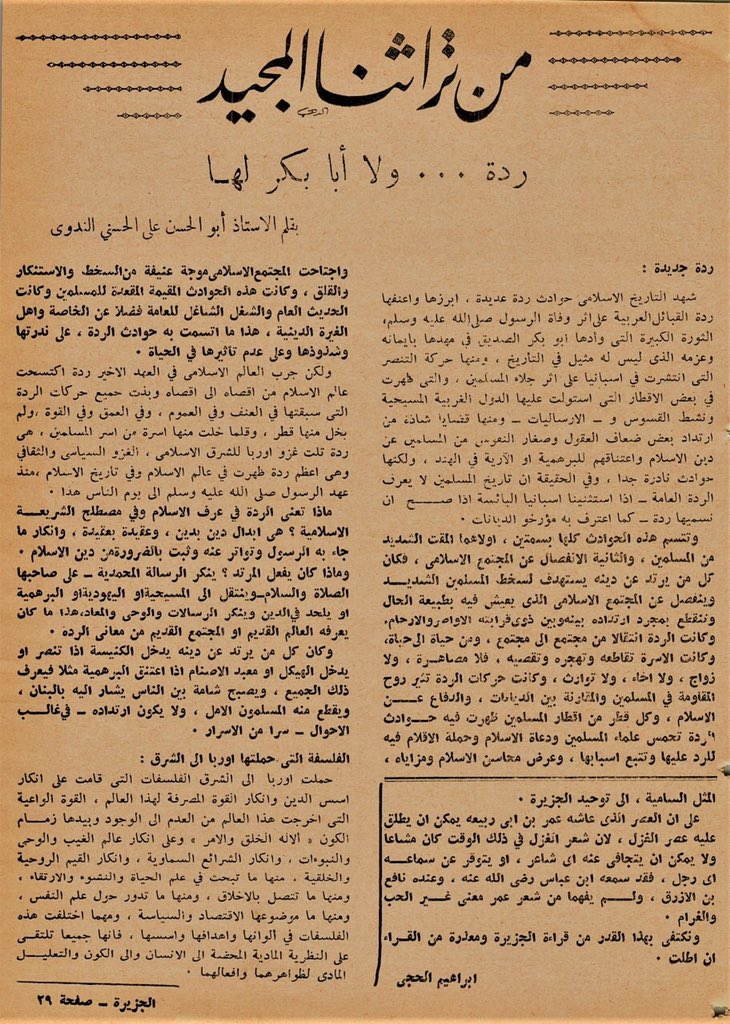 من تراثنا المجيد
ردة ... ولا أبا بكر لها
بقلم الاستاذ أبو الحسن على الحسني الندوى
ردة جديدة :
شهد التاريخ الاسلامى حوادث ردة عديدة ، ابرزها واعنفها
ردة القبائل العربية على اثر وفاة الرسول صلى الله عليه وسلم،
الثورة الكبيرة التى وأدها ابو بكر الصديق في مهدها بايمانه
وعزمه الذى ليس له مثيل في التأريخ ، ومنها حركة التنصر
التى انتشرت في اسبانيا على اثر جلاء المسلمين ، والتى ظهرت
في بعض الاقطار التى استولت عليها الدول الغربية المسيحية
ونشط القسوس و ــ الارساليات ــ ومنها قضايا شاذة من
ارتداد بعض ضعاف العقول وصغار النفوس من المسلمين عن
دين الاسلام واعتناقهم للبرهمية او الآرية في الهند ، ولكنها
حوادث نادرة جدا ، وفي الحقيقة ان تاريخ المسلمين لا يعرف
الردة العامة ــ اذا استثنينا اسبانيا البائسة اذا صح ان
نسميها ردة ــ كما اعترف به مؤرخو الديانات ٠
وتتسم هذه الحوادث كلها بسمتين ، اولاهما المقت الشديد
من المسلمين ، والثانية الانفصال عن المجتمع الاسلامى ، فكان
كل من يرتد عن دينه يستهدف لسخط المسلمين الشديد
وينفصل عن المجتمع الاسلامى الذى يعيش فيه بطبيعة الحال
وتنقطع بمجرد ارتداده بينه وبين ذوى قرابته الاواصر والارحام،
وكانت الردة انتقالا من مجتمع الى مجتمع ، ومن حياة الى حياة،
وكانت الاسرة تقاطعه وتهجره وتقصيه ، فلا مصاهرة ، ولا
زواج ، ولا اخاء ، ولا توارث ، وكانت حركات الردة تثير روح
المقاومة في المسلمين والمقارنة بين الديانات ، والدفاع عن
الاسلام ، وكل قطر من اقطار المسلمين ظهرت فيه حوادث
الردة تحمس علماء المسلمين ودعاة الاسلام وحملة الاقلام فيه
للرد عليها وتتبع اسبابها ، وعرض محاسن الاسلام ومزاياه ،
المثل السامية ، الى توحيد الجزيرة ٠
على ان العصر الذى عاشه عمر بن ابى ربيعه يمكن ان يطلق
عليه عصر الغزل ، لان شعر الغزل في ذلك الوقت كان مشاعا
ولا يمكن ان يتجافى عنه اى شاعر ، او يتوفر عن سماعه
اى رجل ، فقد سمعه ابن عباس رضى الله عنه ، وعنده نافع
بن الازرق ، ولم يفهما من شعر عمر معنى غير الحب
والغرام ٠
ونكتفى بهذا القدر من قراءة الجزيرة ومعذرة من القراء
ان اطلت ٠
ابراهيم الحجى
واجتاحت المجتمع الاسلامى موجة عنيفة من السخط والاستنكار
والقلق ، وكانت هذه الحوادث المقيمة المقعدة للمسلمين وكانت
الحديث العام والشغل الشاغل للعامة فضلا عن الخاصة واهل
الغيرة الدينية ، هذا ما اتسمت به حوادث الردة ، على ندرتها
وشذوذها وعلى عدم تاثيرها في الحياة ٠
ولكن جرب العالم الاسلامى في العهد الاخير ردة اكتسحت
عالم الاسلام من اقصاه الى اقصاه وبذت جميع حركات الردة
التى سبقتها في العنف وفي العموم ، وفي العمق و في القوة ،ولم
يخل منها قطر ، وقلما خلت منها اسرة من اسر المسلمين ، هى
ردة تلت غزو اوربا للشرق الاسلامى ، الغزو السياسى والثقافي
وهى اعظم ردة ظهرت في عالم الاسلام وفي تاريخ الاسلام ،منذ
عهد الرسول صلى الله عليه وسلم الى يوم الناس هذا ٠
ماذا تعنى الردة في عرف الاسلام وفي مصطلح الشريعة
الاسلامية ؟ هى ابدال دين بدين ، وعقيدة بعقيدة ، وانكار ما
جاء به الرسول وتواتر عنه وثبت بالضرورة من دين الاسلام ٠
وماذا كان يفعل المرتد ؟ ينكر الرسالة المحمدية ــ على صاحبها
الصلاة والسلام ــ وينتقل الى المسيحية او اليهودية او البرهمية
او يلحد في الدين وينكر الرسالات والوحى والمعاد،هذا ما كان
يعرفه العالم القديم او المجتمع القديم من معانى الرده ٠
وكان كل من يرتد عن دينه يدخل الكنيسة اذا تنصر او
يدخل الهيكل او معبد الاصنام اذا اعتنق البرهمية مثلا فيعرف
ذلك الجميع ، ويصبح شامة بين الناس يشار اليه بالبنان ،
ويقطع منه المسلمون الامل ، ولا يكون ارتداده ــ في غالب
الاحوال ــ سرا من الاسرار ٠
الفلسفة التى حملتها اوربا الى الشرق :
حملت اوربا الى الشرق الفلسفات التى قامت على انكار
اسس الدين وانكار القوة المصرفة لهذا العالم ، القوة الواعية
التى اخرجت هذا العالم من العدم الى الوجود وبيدها زمام
الكون « ألاله الخلق والامر » وعلى انكار عالم الغيب والوحى
والنبوءات ، وانكار الشرائع السماوية ، وانكار القيم الروحية
والخلقية ، منها ما تبحث في علم الحياة والنشوء والارتقاء ،
ومنها ما تتصل بالاخلاق ، ومنها ما تدور حول علم النفس ،
ومنها ما موضوعها الاقتصاد والسياسة ، ومهما اختلفت هذه
الفلسفات في ألوانها واهدافها واسسها ، فانها جميعا تلتقى
على النظرية المادية المحضة الى الانسان والى الكون والتعليل
المادى لظواهرهما وافعالهما ٠
الجزيرة ــ صفحة ٢٩